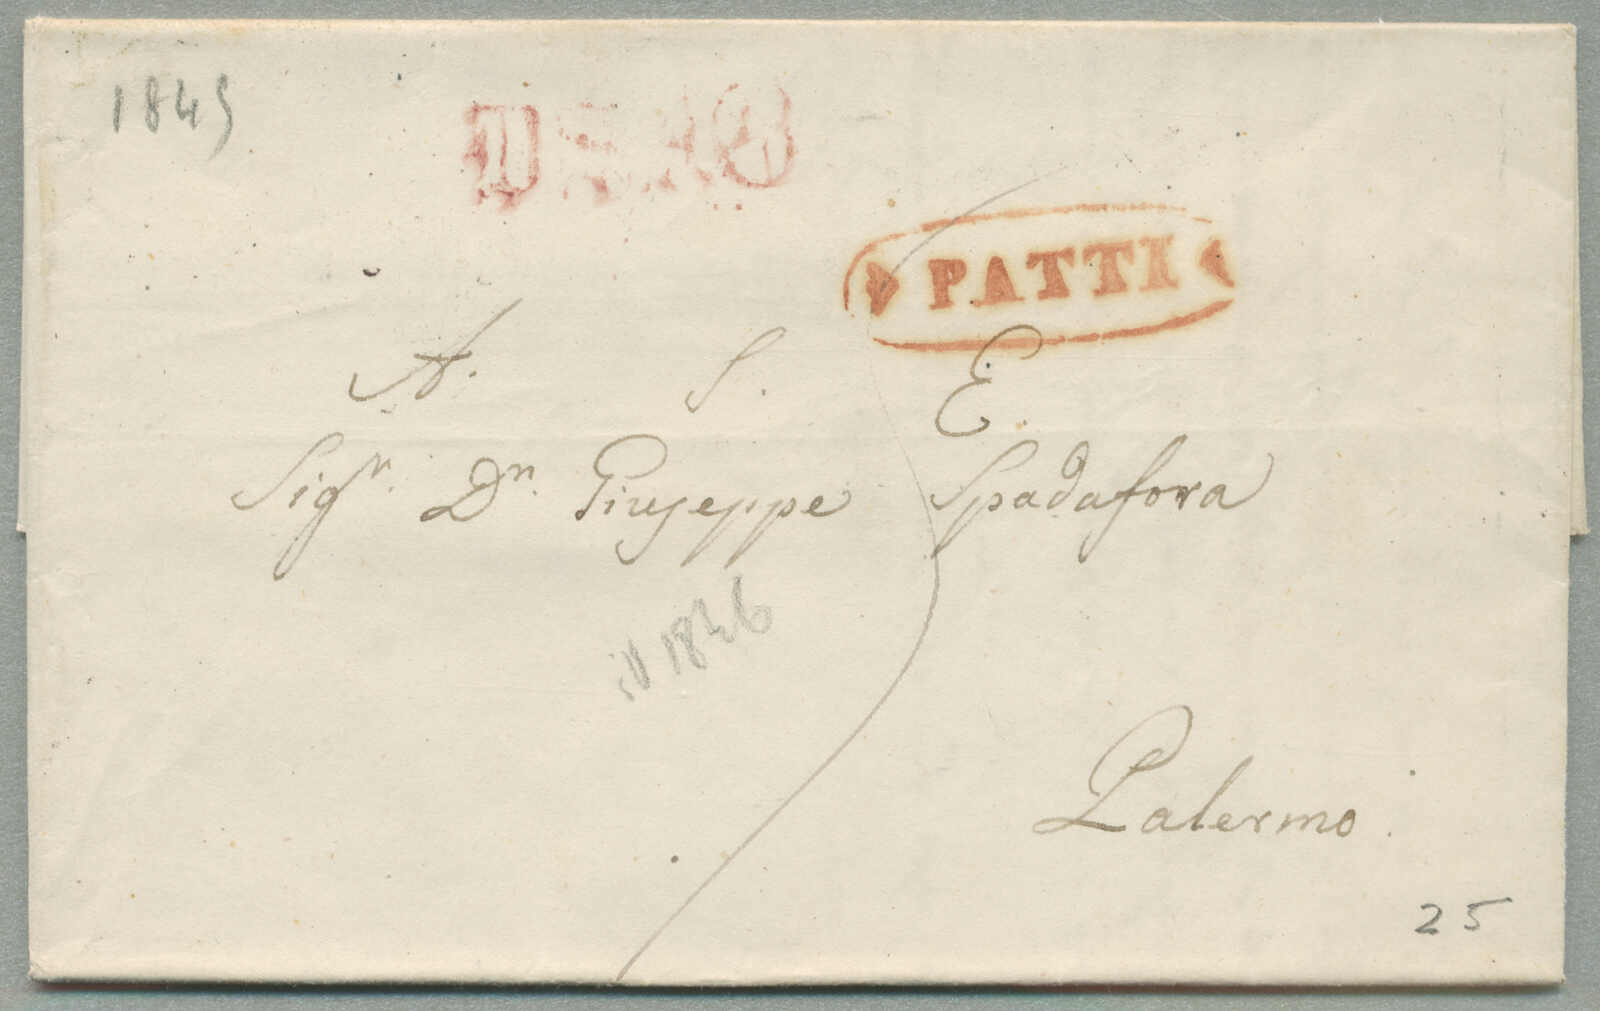 1845
PATTI
A. S. E.
Sigr. Dn. Giuseppe Spadafora
1846
Palermo
25